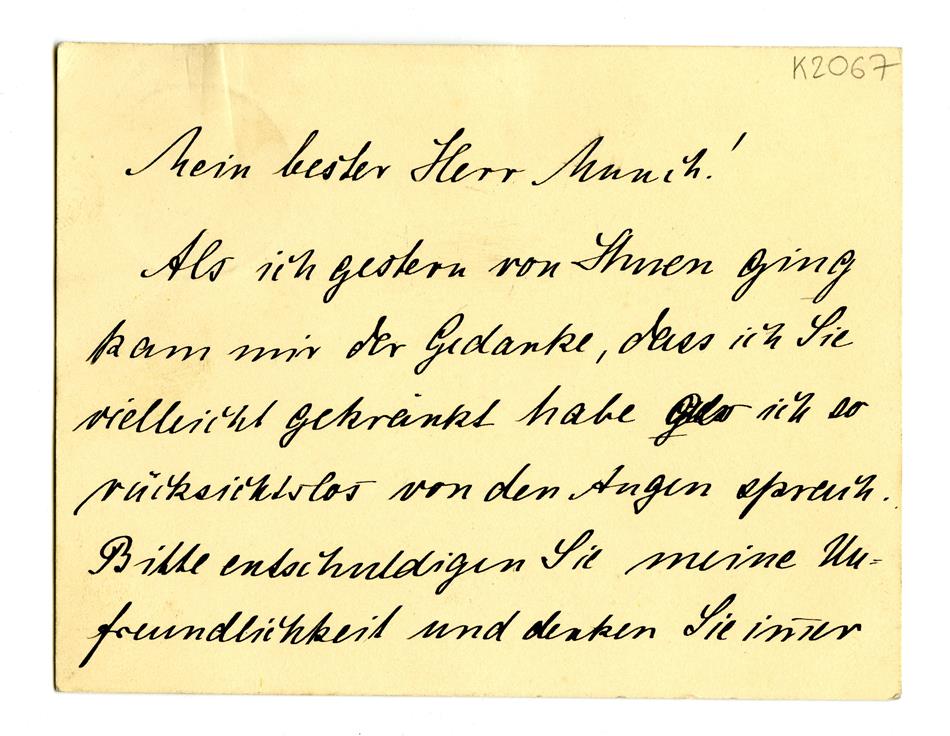 K2067
Mein bester Herr Munch!
Als ich gestern von Ihnen ging
kam mir der Gedanke, dass ich Sie
vielleicht gekränkt habe als ich so
rücksichtslos von den Augen sprach.
Bitte entschuldigen Sie meine Un=
freundlichkeit und denken Sie im̅er